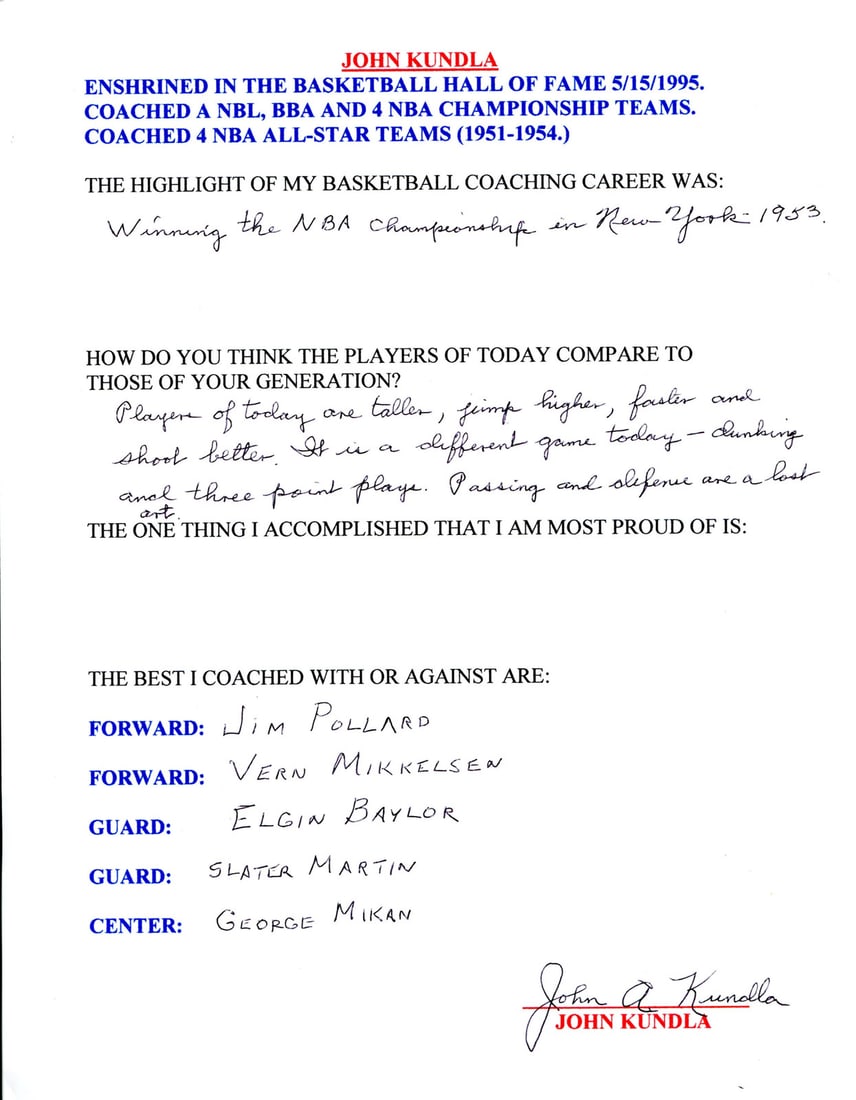 JOHN KUNDLA
ENSHRINED IN THE BASKETBALL HALL OF FAME 5/15/1995.
COACHED A NBL, BBA AND 4 NBA CHAMPIONSHIP TEAMS.
COACHED 4 NBA ALL-STAR TEAMS (1951-1954.)
THE HIGHLIGHT OF MY BASKETBALL COACHING CAREER WAS:
Winning the NBA Championship in New York - 1953.
HOW DO YOU THINK THE PLAYERS OF TODAY COMPARE TO
THOSE OF YOUR GENERATION?
Players of today are taller, jump higher, faster and
shoot better. It is a different game today – dunking
and three point plays. Passing and defense are a lost
art.
THE ONE THING I ACCOMPLISHED THAT I AM MOST PROUD OF IS:
THE BEST I COACHED WITH OR AGAINST ARE:
FORWARD: JIM POLLARD
FORWARD: VERN MIKKELSEN
GUARD: ELGIN BAYLOR
GUARD: SLATER MARTIN
CENTER: GEORGE MIKAN
John A Kundla
JOHN KUNDLA